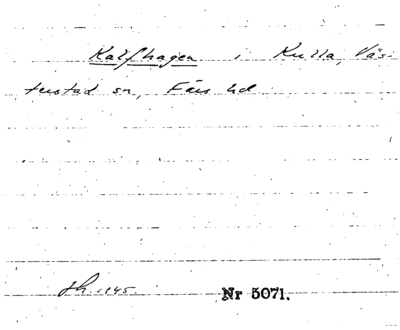 Kalfhagen i Kulla, Väs-
terstad sn, Färs hd
Sk. 1845. Nr 5071.